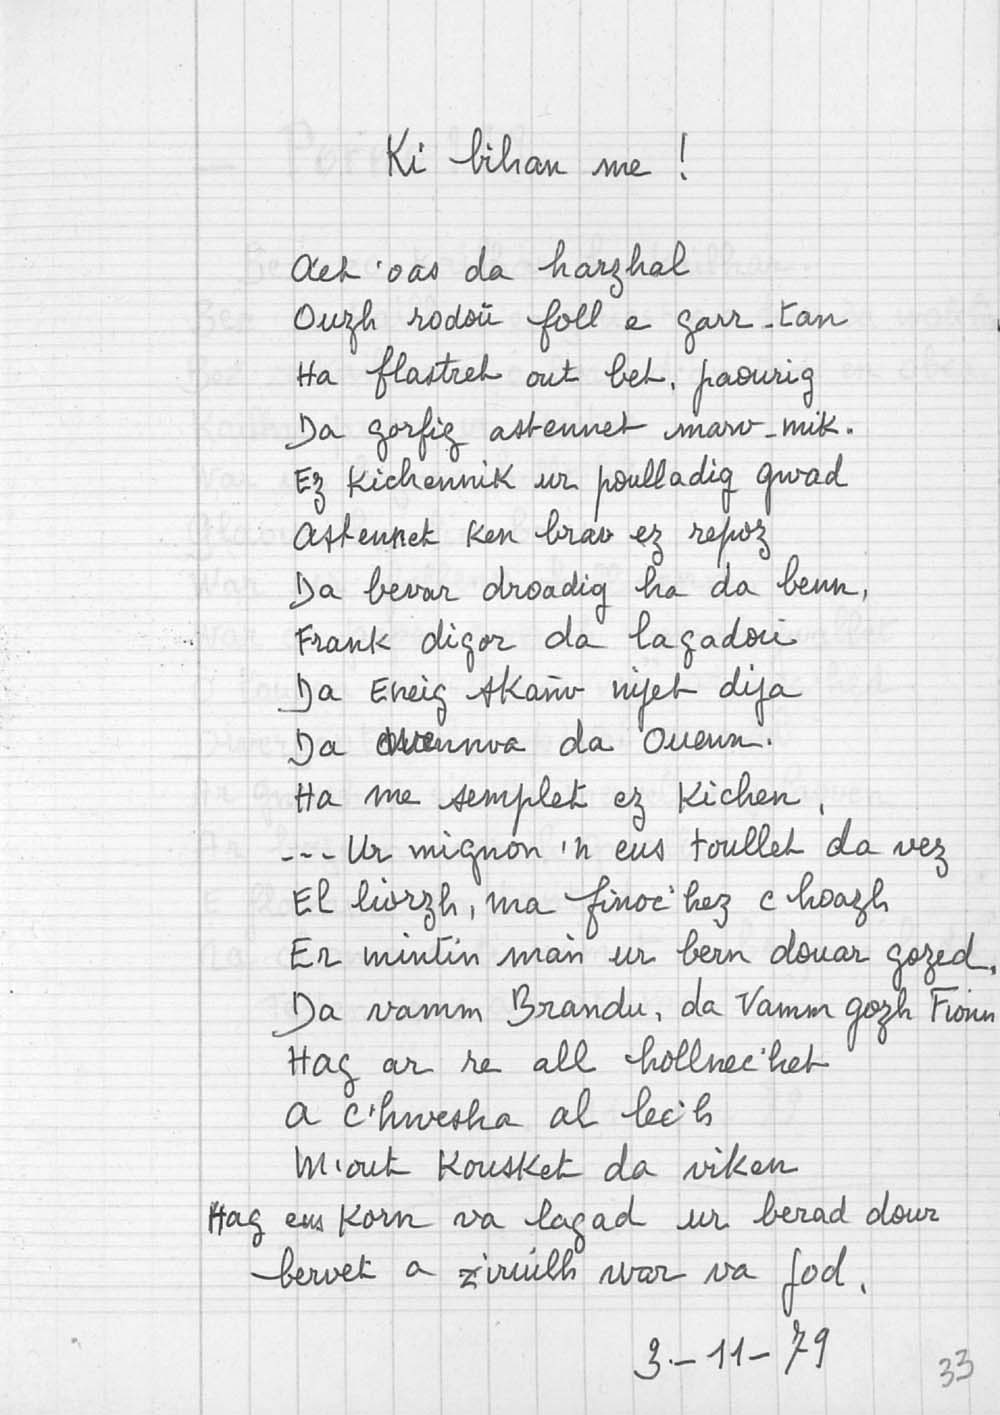 Ki bihan me !
Aet 'oas da harzhal
Ouzh rodoù foll e garr-tan
Ha flastret out bet, paourig
Da gorfig astennet marv-mik.
Ez Kichennik ur poulladig gwad
Astennet Ken brav ez repoz
Da bevar droadig ha da benn,
Frank digor da lagadoù
Da Eneig skañv nijet dija
Da da Ouenn.
Ha me semplet ez Kichen,
--- Ur mignon 'n eus toullet da vez
El liorzh, ma finoc'hez c'hoazh
Er mintin mañ ur bern douar gozed,
Da vamm Brandu, da Vamm gozh Fionn
Hag ar re all hollnec'het
A c'hwesha al lec'h
M'out Kousket da viken
Hag eus Korn va lagad ur berad dour
bervet a ziruilh war va jod.
3.-11-79
33